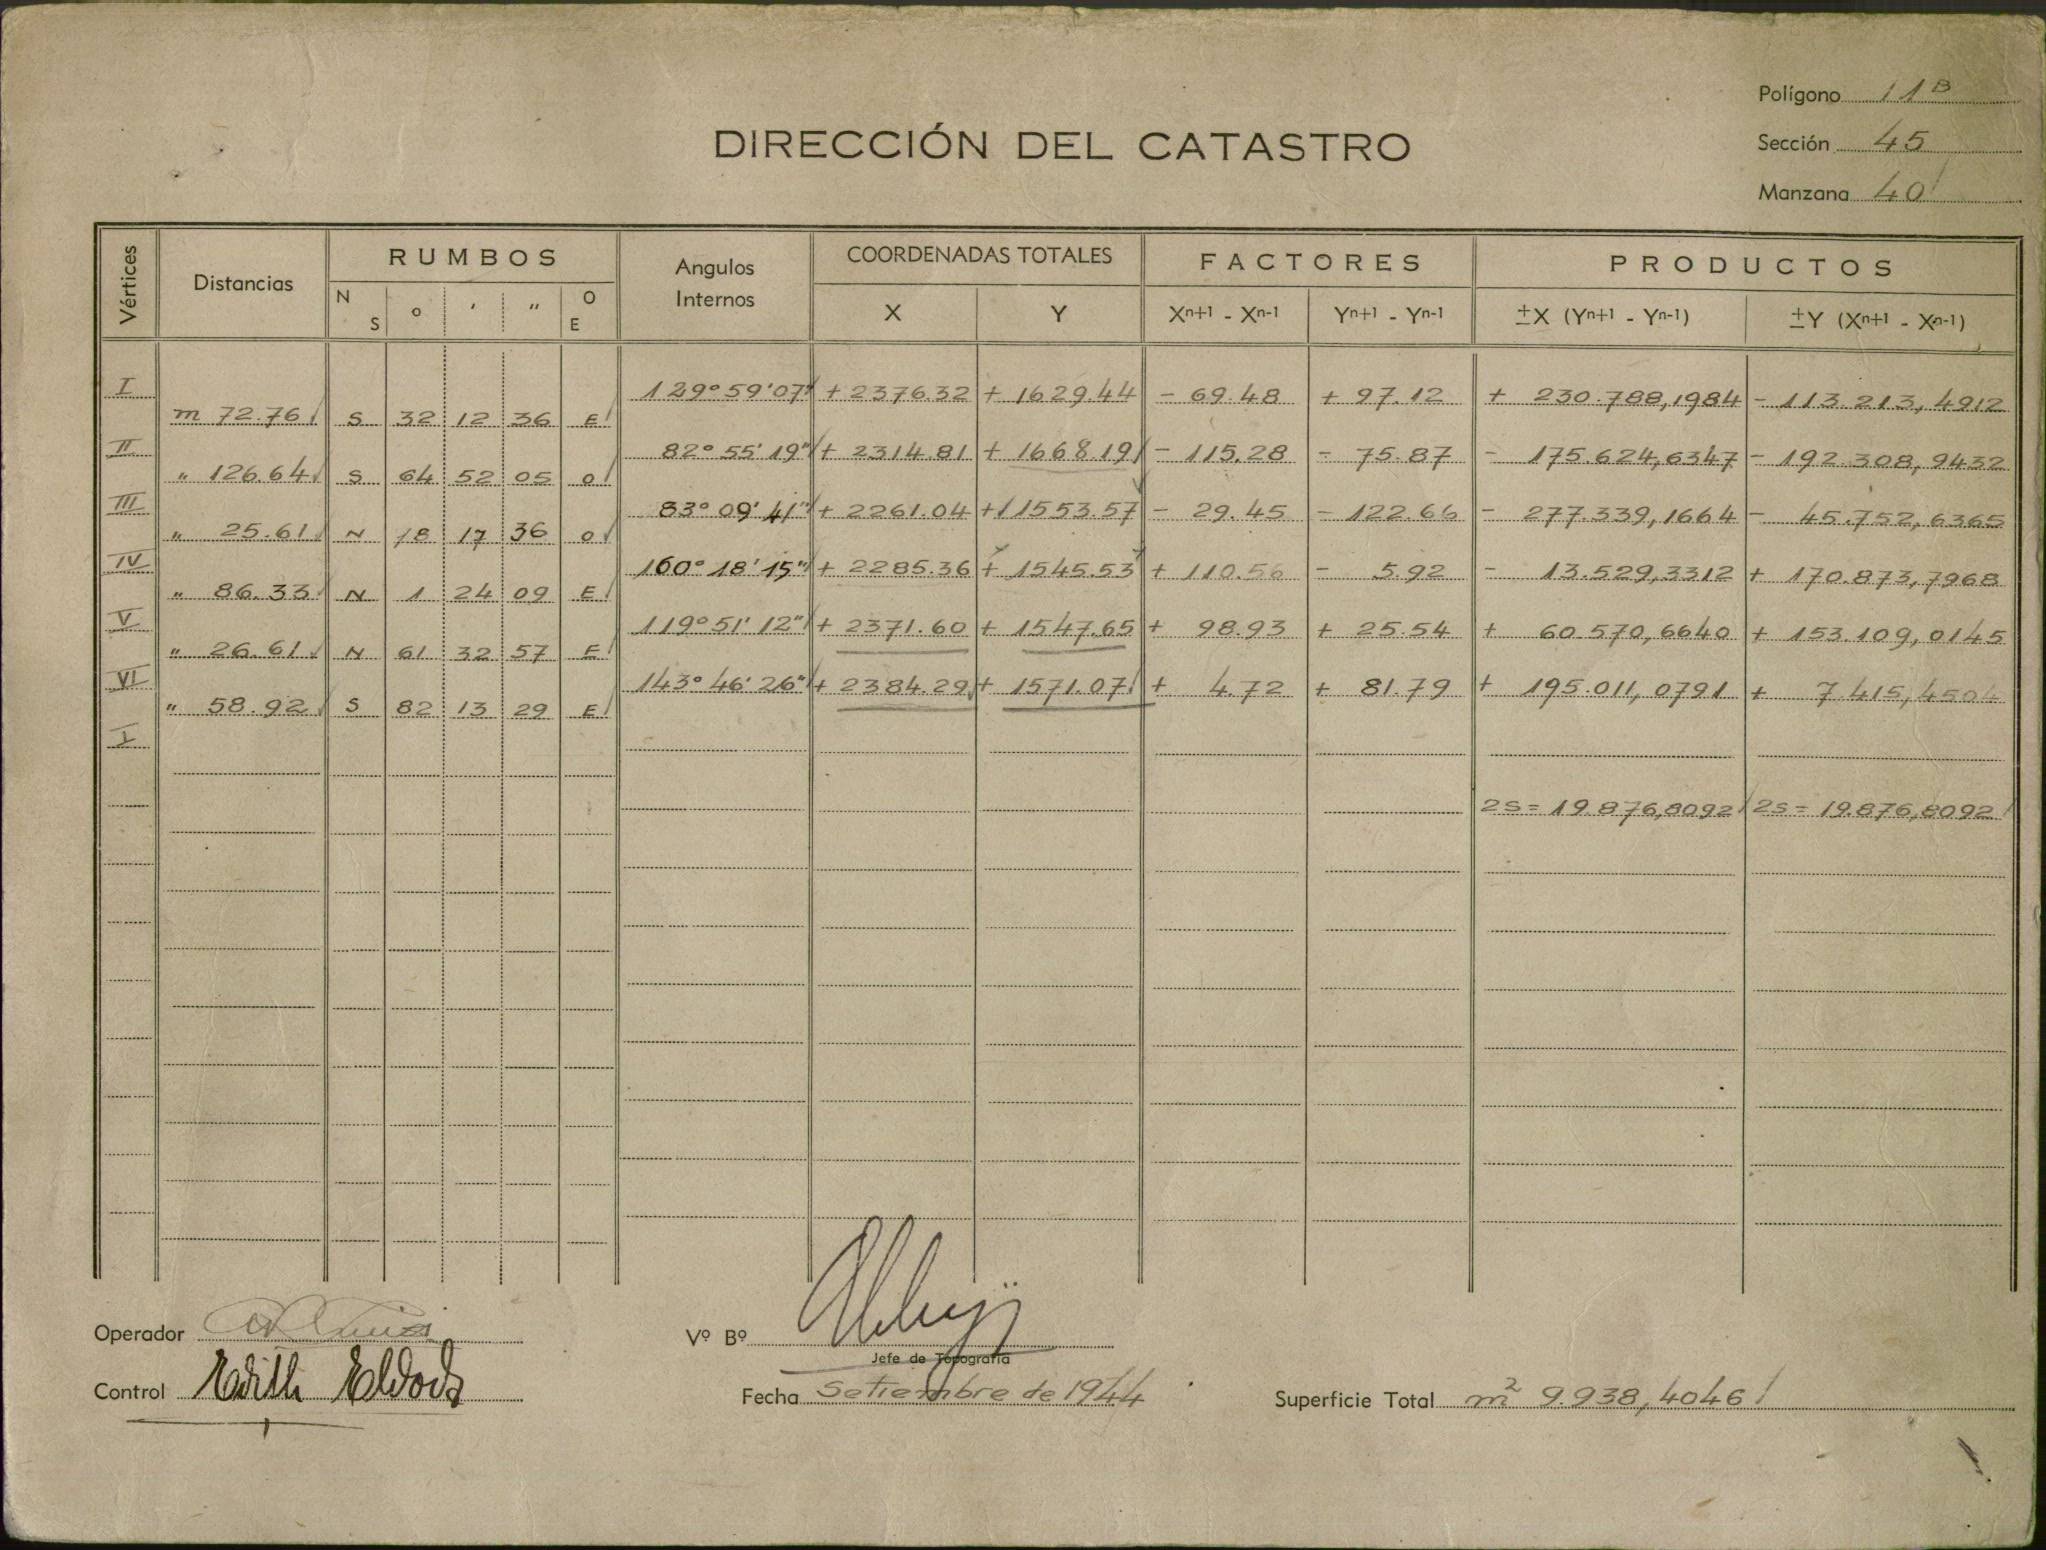 Polígono 11B
DIRECCIÓN DEL CATASTRO
Sección 45
Manzana 40
Vértices Distancias RUMBOS Angulos Internos COORDENADAS TOTALES FACTORES PRODUCTOS
N S º ' " O E X Y Xn+1 - Xn-1 Yn+1 - Yn-1 ±X (Yn+1 - Yn-1) ±Y (Xn+1 - Xn-1)
I 129º 59' 07" + 2376.32 + 1629.44 - 69.48 + 97.12 + 230.788,1984 - 113.213,4912
m 72.76 S 32 12 36 E
II 82º 55' 19" + 2314.81 + 1668.19 - 115.28 - 75.87 - 175.624,6347 - 192.308,9432
" 126.64 S 64 52 05 O
III 83º 09' 41" + 2261.04 + 1553.57 - 29.45 - 122.66 - 277.339,1664 - 45.752,6365
" 25.61 N 18 17 36 O
IV 160º 18' 15" + 2285.36 + 1545.53 + 110.56 - 5.92 - 13.529,3312 + 170.873,7968
" 86.33 N 1 24 09 E
V 119º 51' 12" + 2371.60 + 1547.65 + 98.93 + 25.54 + 60.570,6640 + 153.109,0145
" 26.61 N 61 32 57 E
VI 143º 46' 26" + 2384.29 + 1571.07 + 4.72 + 81.79 + 195.011,0791 + 7.415,4504
" 58.92 S 82 13 29 E
I
2S = 19.876,8092 2S = 19.876,8092
Operador
Vº Bº
Jefe de Topografía
Control Edith
Fecha Setiembre de 1944
Superficie Total m2 9.938,4046